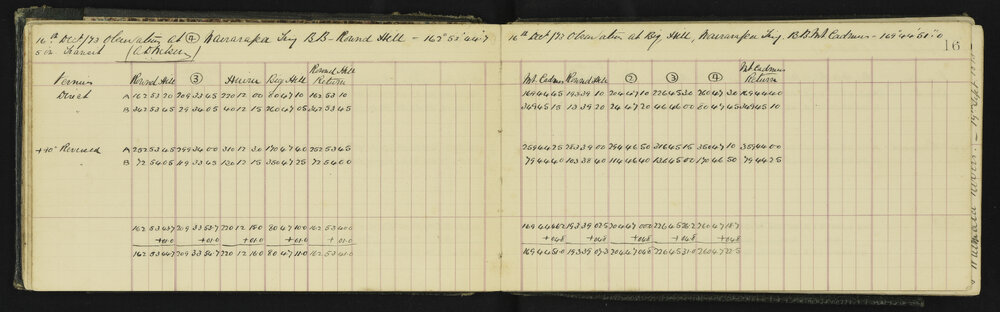 16th Dect/73 Observation at ④ Wairarapa Trig BB - Round Hill - 162° 53' 44".7
5 in Transit (A. D. Wilson)
Vernier Round Hill ③ Hurura Bog Hill Round Hill Return
Direct A 162 53 20 209 33 45 220 12 00 80 47 10 162 53 10
" B 342 53 45 29 34 05 40 12 15 260 47 05 342 53 45
+90° Reversed A 252 53 45 299 34 00 310 12 30 170 47 40 252 53 45
" B 72 54 05 119 33 45 130 12 15 350 47 25 72 54 00
162 53 43.7 209 33 53.7 220 12 15.0 80 47 10.0 162 53 40.0
+01.0 +01.0 +01.0 +01.0 +01.0
162 53 44.7 209 33 54.7 220 12 16.0 80 47 11.0 162 53 41.0
16th Dect/73 Observation at Big Hill, Wairarapa Trig BB Mt Cadmus - 169° 44' 51".0
16
Mt. Cadmus Round Hill ② ③ ④ Mt Cadmus Return
169 44 45 193 39 10 204 47 10 226 45 30 260 47 30 169 44 40
349 45 15 13 39 20 24 47 20 46 46 00 80 47 45 349 45 10
259 44 25 283 39 00 294 46 50 316 45 15 350 47 10 359 44 00
79 44 40 103 38 40 114 46 40 136 45 00 170 46 50 79 44 25
169 44 46.2 193 39 02.5 204 47 00.0 226 45 26.2 260 47 18.7
+04.8 +04.8 +04.8 +04.8 +04.8
169 44 51.0 193 39 07.3 204 47 04.8 226 45 31.0 260 47 23.5